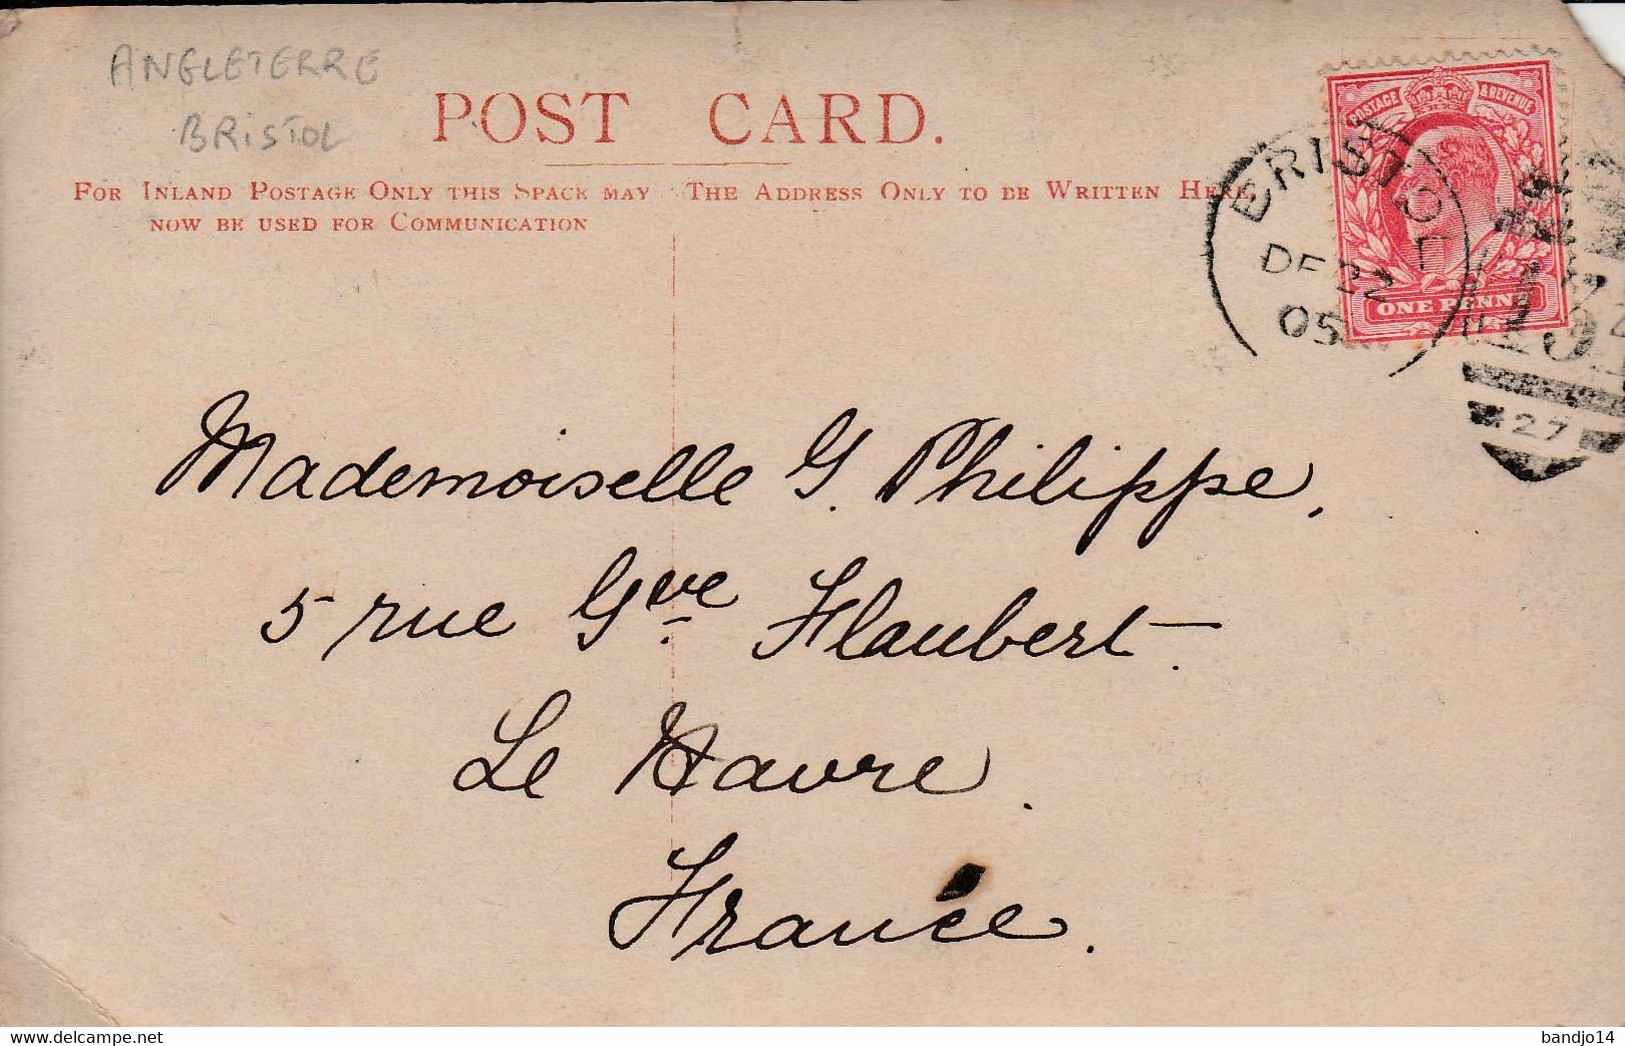 ANGLETERRE
BRISTOL
POST CARD.
FOR INLAND POSTAGE ONLY THIS SPACE MAY
NOW BE USED FOR COMMUNICATION
THE ADDRESS ONLY TO BE WRITTEN HERE
POSTAGE & REVENUE
ONE PENNY
BRISTOL
DE 22
05
27
Mademoiselle G. Philippe,
5 rue Gve Flaubert.
Le Havre.
France.
delcampe.net
bandjo14